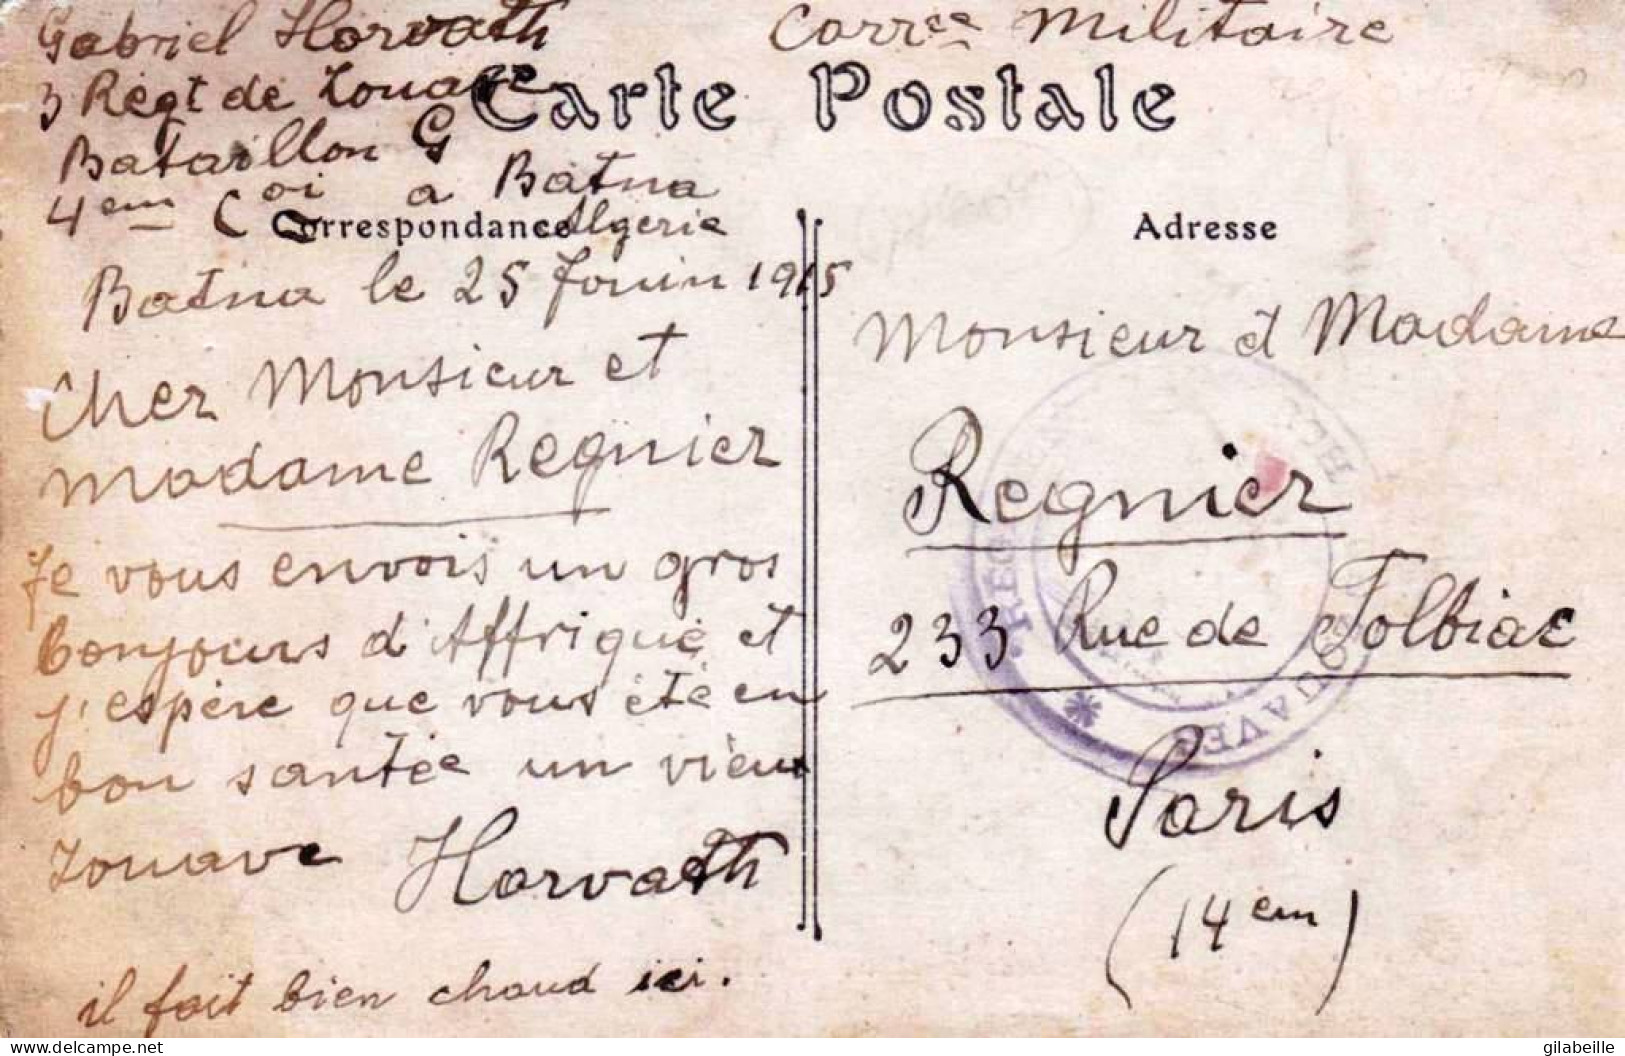 Gabriel Horvath
3 Régt de Zouave
Bataillon G
4em Coi a Batna
Algerie
Corrce Militaire
Carte Postale
Correspondance
Adresse
Batna le 25 Jouin 1915
Cher Monsieur et
Madame Regnier
Je vous envois un gros
bonjours d'Affrique et
j'espère que vous été en
bon santée un vieux
Zouave Horvath
il fait bien chaud ici.
Monsieur et Madame
Regnier
233 Rue de Tolbiac
Paris
(14em)
ZOUAVES
gilabeille